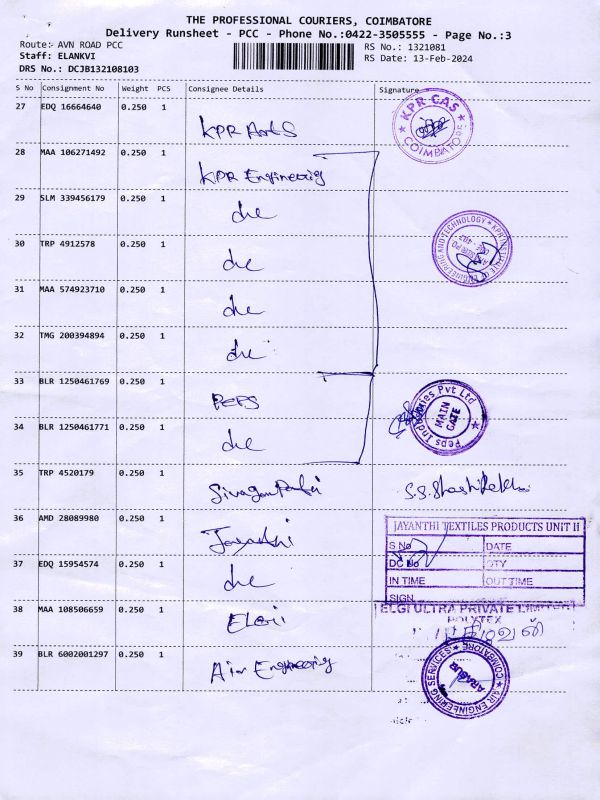 THE PROFESSIONAL COURIERS, COIMBATORE
Delivery Runsheet - PCC - Phone No.:0422-3505555 - Page No.:3
Route:- AVN ROAD PCC
RS No.: 1321081
Staff: ELANKVI
RS Date: 13-Feb-2024
DRS No.: DCJB132108103
S No Consignment No Weight PCS Consignee Details Signature
27 EDQ 16664640 0.250 1 KPR Arts
KPR CAS COIMBATORE
28 MAA 106271492 0.250 1 KPR Engineering
29 SLM 339456179 0.250 1
30 TRP 4912578 0.250 1
KPR INSTITUTE OF ENGINEERING AND TECHNOLOGY
31 MAA 574923710 0.250 1
32 TMG 200394894 0.250 1
33 BLR 1250461769 0.250 1 PEPS
34 BLR 1250461771 0.250 1
Peps Industries Pvt Ltd
MAIN
GATE
35 TRP 4520179 0.250 1
36 AMD 28089980 0.250 1 Jayanthi
JAYANTHI TEXTILES PRODUCTS UNIT II
S No DATE
DC No QTY
IN TIME OUT TIME
SIGN
37 EDQ 15954574 0.250 1
38 MAA 108506659 0.250 1 ELGi
ELGI ULTRA PRIVATE LIMITED
39 BLR 6002001297 0.250 1 Air Engineering
AIR ENGINEERING SERVICES COIMBATORE
ARASUR